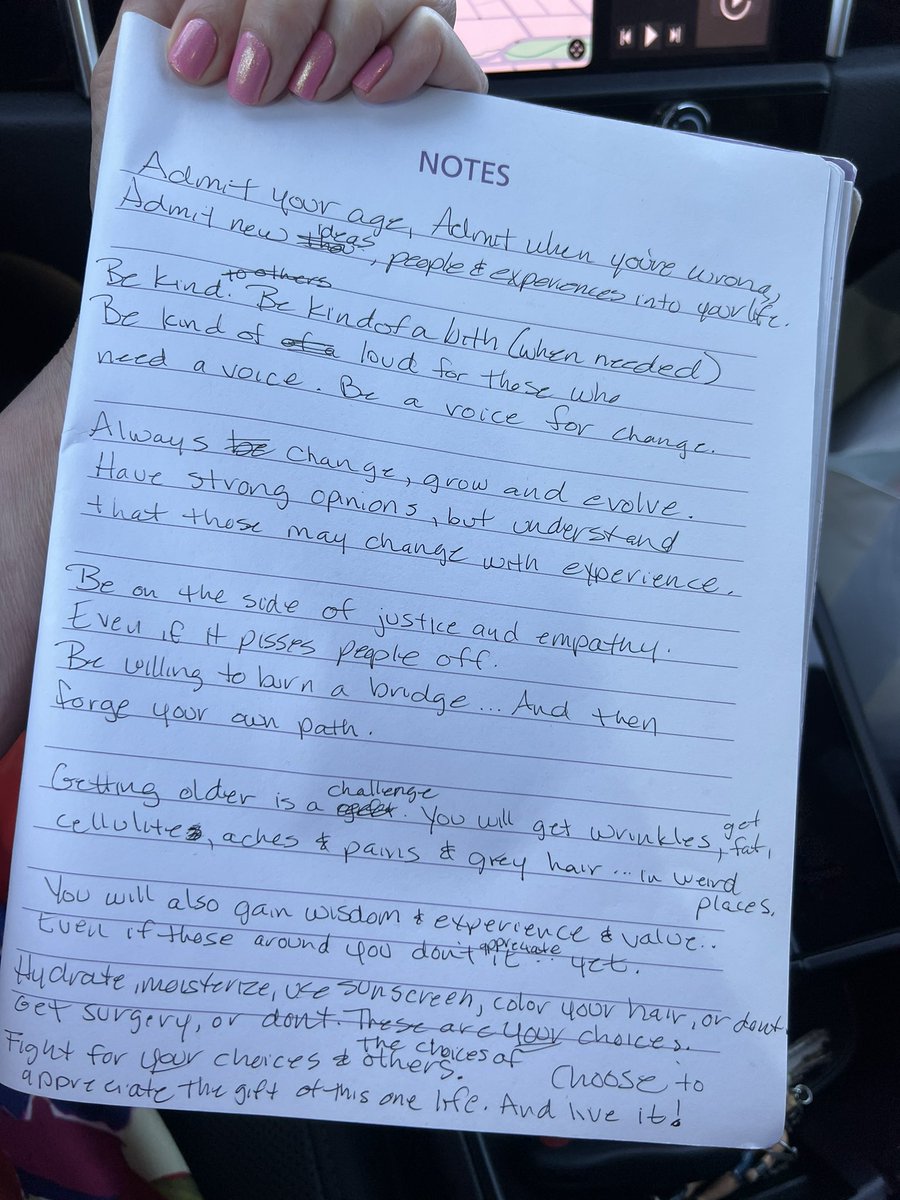 NOTES
Admit your age, Admit when you're wrong,
Admit new ideas, people & experiences into your life.
to others
Be kind. Be kind of a bith (when needed)
Be kind of of a loud for those who
need a voice. Be a voice for change.
Always be change, grow and evolve.
Have strong opinions, but understand
that those may change with experience.
Be on the side of justice and empathy.
Even if it pisses people off.
Be willing to burn a bridge... And then
forge your own path.
Getting older is a challenge. You will get wrinkles, get fat,
cellulite, aches & pains & grey hair... in weird
places.
You will also gain wisdom & experience & value..
Even if those around you don't appreciate it... yet.
Hydrate, moisterize, use sunscreen, color your hair, or dont
Get surgery, or dont. These are your choices.
Fight for your choices & the choices of others. Choose to
appreciate the gift of this one life. And live it!